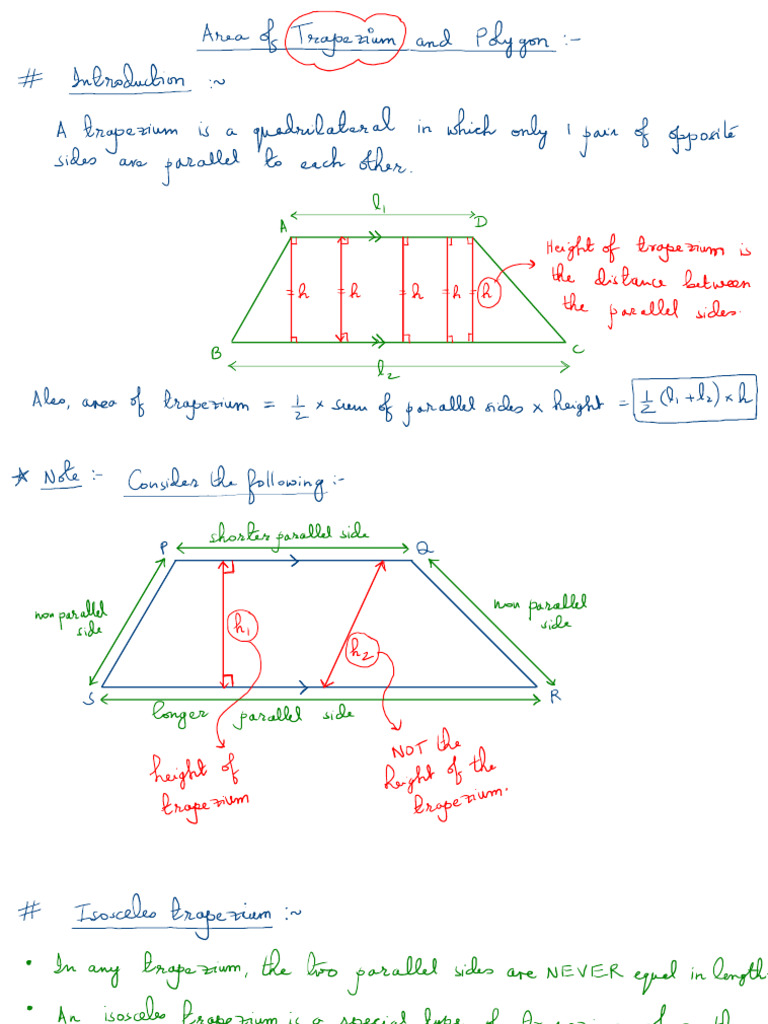 Area of Trapezium and Polygon :-
# Introduction :~
A trapezium is a quadrilateral in which only 1 pair of opposite
sides are parallel to each other.
l₁
A D
= h = h = h = h = h
Height of trapezium is
the distance between
the parallel sides.
B C
l₂
Also, area of trapezium = 1/2 × sum of parallel sides × height = 1/2 (l₁ + l₂) × h
* Note :- Consider the following :-
shorter parallel side
P Q
non parallel
side
non parallel
side
h₁
h₂
S R
longer parallel side
height of
trapezium
NOT the
height of the
trapezium.
# Isosceles trapezium :~
• In any trapezium, the two parallel sides are NEVER equal in length.
• An isosceles trapezium is a special type of